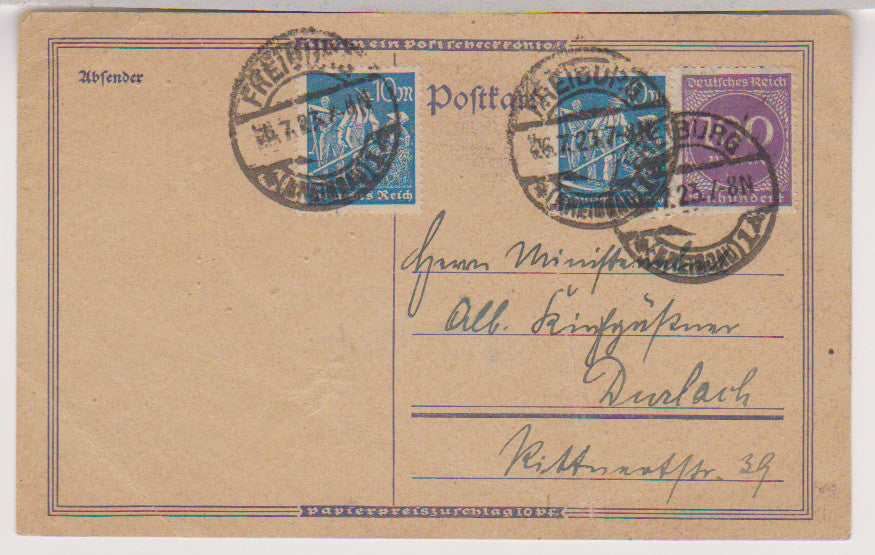 ein Postscheckkonto
Absender
Postkarte
10 M
Deutsches Reich
Deutsches Reich
100
hundert
FREIBURG
26.7.23.7-8N
(BREISGAU) 1
FREIBURG
26.7.23.7-8N
(BREISGAU) 1
FREIBURG
7.23.7-8N
(BREISGAU) 1
Herrn
Alb. Kirchgäßner
Durlach
Rittnertstr. 39
Papierpreiszuschlag 10 Pf.